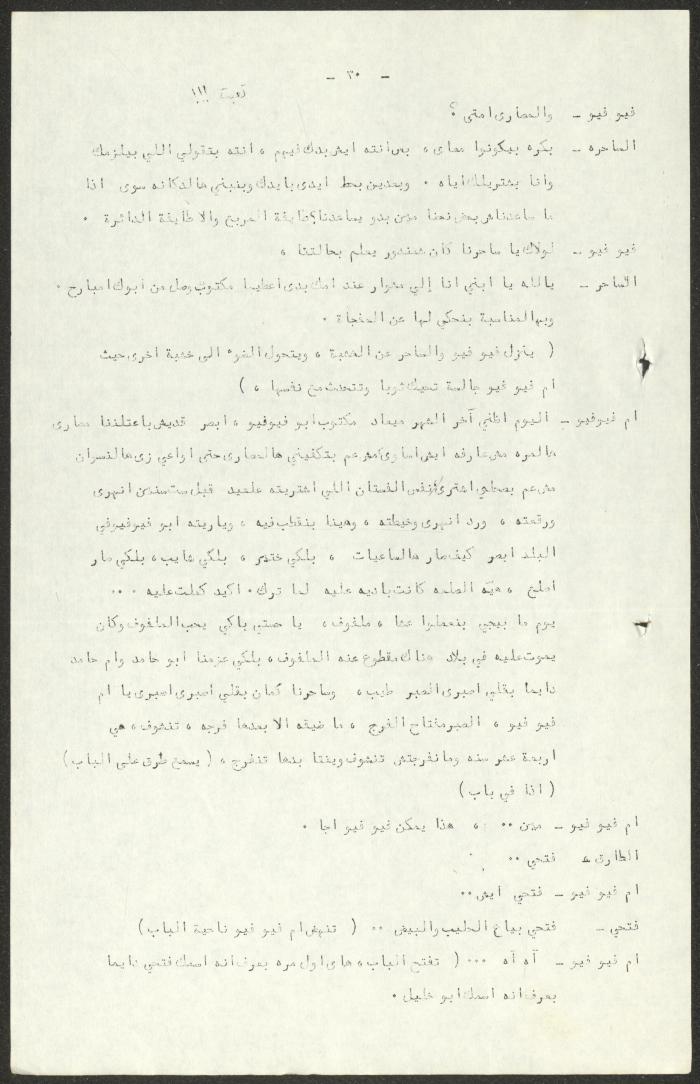 - ٣٠ -
تعبت !!!
فيو فيو - والمصارى امتى ؟
الساحره - بكره بيكونوا معاى ، بس انته ايش بدك فيهم ، انته بتقولي اللي بيلزمك
وانا بشتريلك اياه . وبعدين بحط ايدى بايدك وبنبني هالدكانه سوى اذا
ما ساعدناش بعض نحنا مين بدو يساعدنا طايفة المريخ والا طايفة الدائرة .
فيو فيو - لولاك يا ساحرنا كان محدور يعلم بحالتنا ،
الساحر - يالله يا ابني انا إلي مشوار عند امك بدى اعطيها مكتوب وصل من أبوك امبارح .
وبهالمناسبة بنحكي لها عن الحفجاة .
( ينزل فيو فيو والساحر عن الخشبة ، ويتحول الضوء الى خشبة اخرى حيث
ام فيو فيو جالسة تحيك ثوبا وتتحدث مع نفسها ، )
ام فيوفيو - اليوم اظني آخر الشهر ميعاد مكتوب ابو فيوفيو ، ابصر قديش باعتلننا مصارى
هالمره مش عارفه ايش اساوى مش عم بتكفيني هالمصارى حتى اواعي زى هالنسوان
مش عم بصحلي اشترى نفس الفستان اللي اشتريته علعيد قبل ست سنين انهرى
ورقعته ، ورد انهرى وخيطته ، وهينا بنقطب فيه ، وياريته ابو فيوفيو في
البلد ابصر كيف صار هالساعيات ، بلكي ختير ، بلكي شايب ، بلكي صار
اصلع ، هيه الصلعه كانت باديه عليه لما ترك . اكيد كملت عليه . ..
يوم ما بيجي بنعملوا عشا ، ملفوف ، يا حستي باكي يحب الملفوف وكان
يموت عليه في بلاد هناك مقطوع عنه الملفوف ، بلكي عزمنا ابو حامد وام حامد
دايما بقلي اصبرى الصبر طيب ، وساحرنا كمان بقلي اصبرى اصبرى يا ام
فيو فيو ، الصبر مفتاح الفرج ، ما ضيقه الا بعدها فرجه ، تنشوف ، هي
اربعة عشر سنه وما نفرجتش تنشوف وينتا بدها تنفرج ، ( يسمع طرق على الباب )
( اذا في باب )
ام فيو فيو - مين .. ، هذا يمكن فيو فيو اجا .
الطارق - فتحي ..
ام فيو فيو - فتحي ايش ..
فتحي - فتحي بياع الحليب والبيض .. ( تنهض ام فيو فيو ناحية الباب )
ام فيو فيو - آه آه ... ( تفتح الباب ، هاى اول مره بعرف انه اسمك فتحي دايما
بعرف انه اسمك ابو خليل .